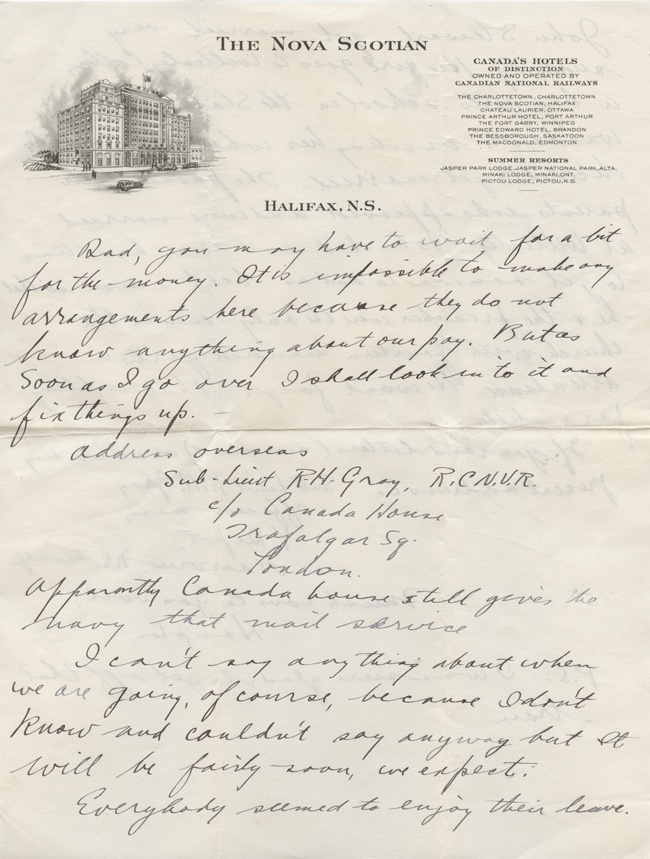 THE NOVA SCOTIAN
CANADA'S HOTELS
OF DISTINCTION
OWNED AND OPERATED BY
CANADIAN NATIONAL RAILWAYS
THE CHARLOTTETOWN, CHARLOTTETOWN
THE NOVA SCOTIAN, HALIFAX
CHATEAU LAURIER, OTTAWA
PRINCE ARTHUR HOTEL, PORT ARTHUR
THE FORT GARRY, WINNIPEG
PRINCE EDWARD HOTEL, BRANDON
THE BESSBOROUGH, SASKATOON
THE MACDONALD, EDMONTON
SUMMER RESORTS
JASPER PARK LODGE, JASPER NATIONAL PARK, ALTA.
MINAKI LODGE, MINAKI, ONT.
PICTOU LODGE, PICTOU, N.S.
HALIFAX, N.S.
Dad, you may have to wait for a bit
for the money. It is impossible to make any
arrangements here because they do not
know anything about our pay. But as
soon as I go over I shall look in to it and
fix things up. —
Address overseas
Sub-Lieut R.H. Gray, R.C.N.V.R.
c/o Canada House
Trafalgar Sq.
London.
Apparently Canada house still gives the
navy that mail service
I can't say anything about when
we are going, of course, because I don't
know and couldn't say anyway but it
will be fairly soon, we expect.
Everybody seemed to enjoy their leave.